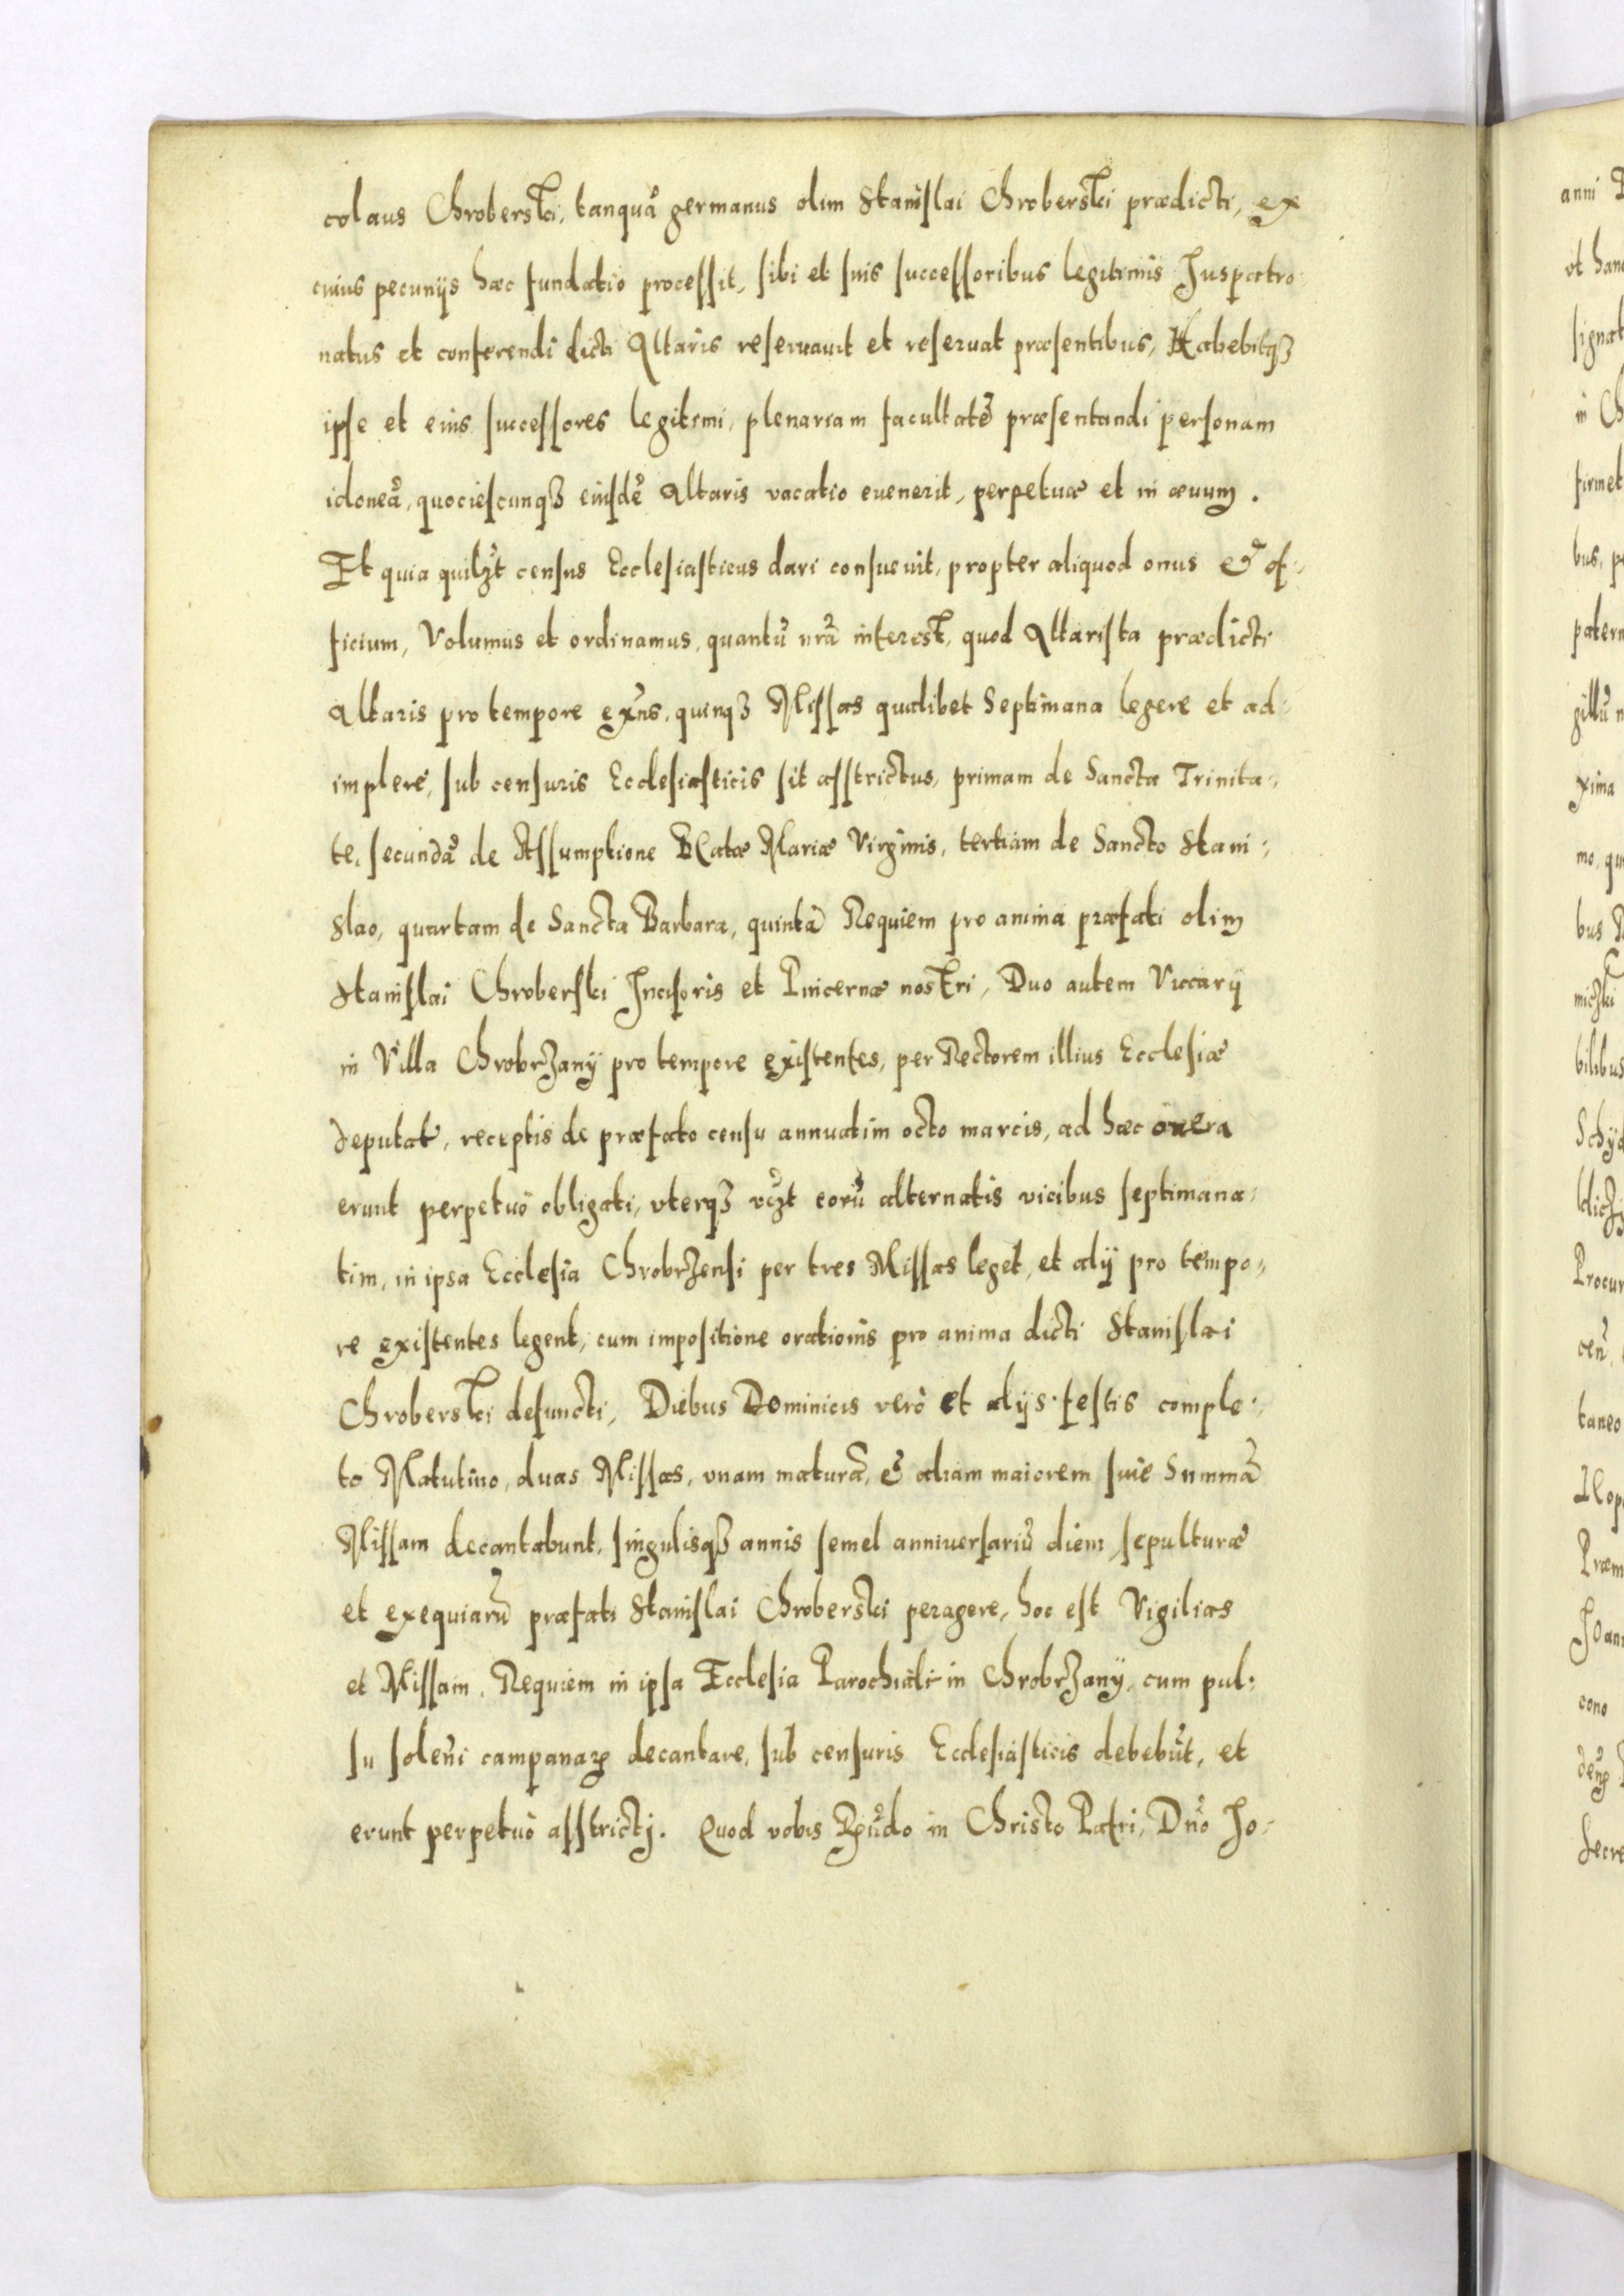 colaus Chroberski, tanquã germanus olim Stanislai Chroberski prædicti, ex
cuius pecunijs hæc fundatio processit, sibi et suis successoribus legitimis Juspatro
natus et conferendi dicti Altaris reseruauit et reseruat præsentibus, Habebitqȝ
ipse et eius successores legitimi, plenariam facultatẽ præsentandi personam
idoneã, quociescunqȝ eiusdẽ Altaris vacatio euenerit, perpetuæ et in æuum.
Et quia quilȝt census Ecclesiasticus dari consueuit, propter aliquod onus & of-
ficium, Volumus et ordinamus, quantũ nrã interest, quod Altarista prædicti
Altaris pro tempore exñs, quinqȝ Missas qualibet Septimana legere et ad-
implere, sub censuris Ecclesiasticis sit asstrictus, primam de Sancta Trinita-
te, secundã de Assumptione Beatæ Mariæ Virginis, tertiam de Sancto Stani-
slao, quartam de Sancta Barbara, quintã Requiem pro anima præfati olim
Stanislai Chroberski Incisoris et Pincernæ nostri, Duo autem Vicarij
in Villa Chrobrzany pro tempore existentes, per Rectorem illius Ecclesiæ
deputat, receptis de præfato censu annuatim octo marcis, ad hæc onera
erunt perpetuò obligati, vterqȝ vȝt eorũ alternatis vicibus septimana-
tim, in ipsa Ecclesia Chrobrzensi per tres Missas leget, et alij pro tempo-
re existentes legent, cum impositione orationis pro anima dicti Stanislai
Chroberski defuncti, Diebus Dominicis verò et alijs festis comple-
to Matutino, duas Missas, vnam maturã, & aliam maiorem siue Summã
Missam decantabunt, singulisqȝ annis semel anniuersariũ diem sepulturæ
et exequiarũ præfati Stanislai Chroberski peragere, hoc est Vigilias
et Missam Requiem in ipsa Ecclesia Parochiali in Chrobrzany, cum pul-
su soleñi campanaꝝ decantare, sub censuris Ecclesiasticis debebũt, et
erunt perpetuò asstricti. Quod vobis Rñdo in Christo Patri, Dño Jo-